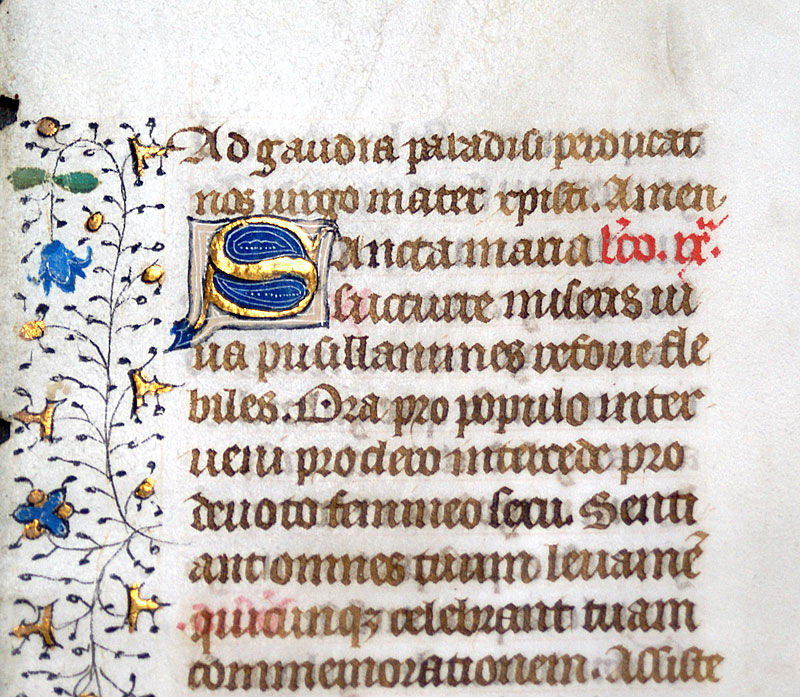 Ad gaudia paradisi perducat
nos uirgo mater xpisti. Amen
Sancta maria lc̄o. ix.
succurre miseris iu
ua pusillanimes refoue fle
biles. Ora pro populo inter
ueni pro clero intercede pro
deuoto femineo sexu. Senti
ant omnes tuum leuamē
quicunqꝫ celebrant tuam
commemorationem. Assiste